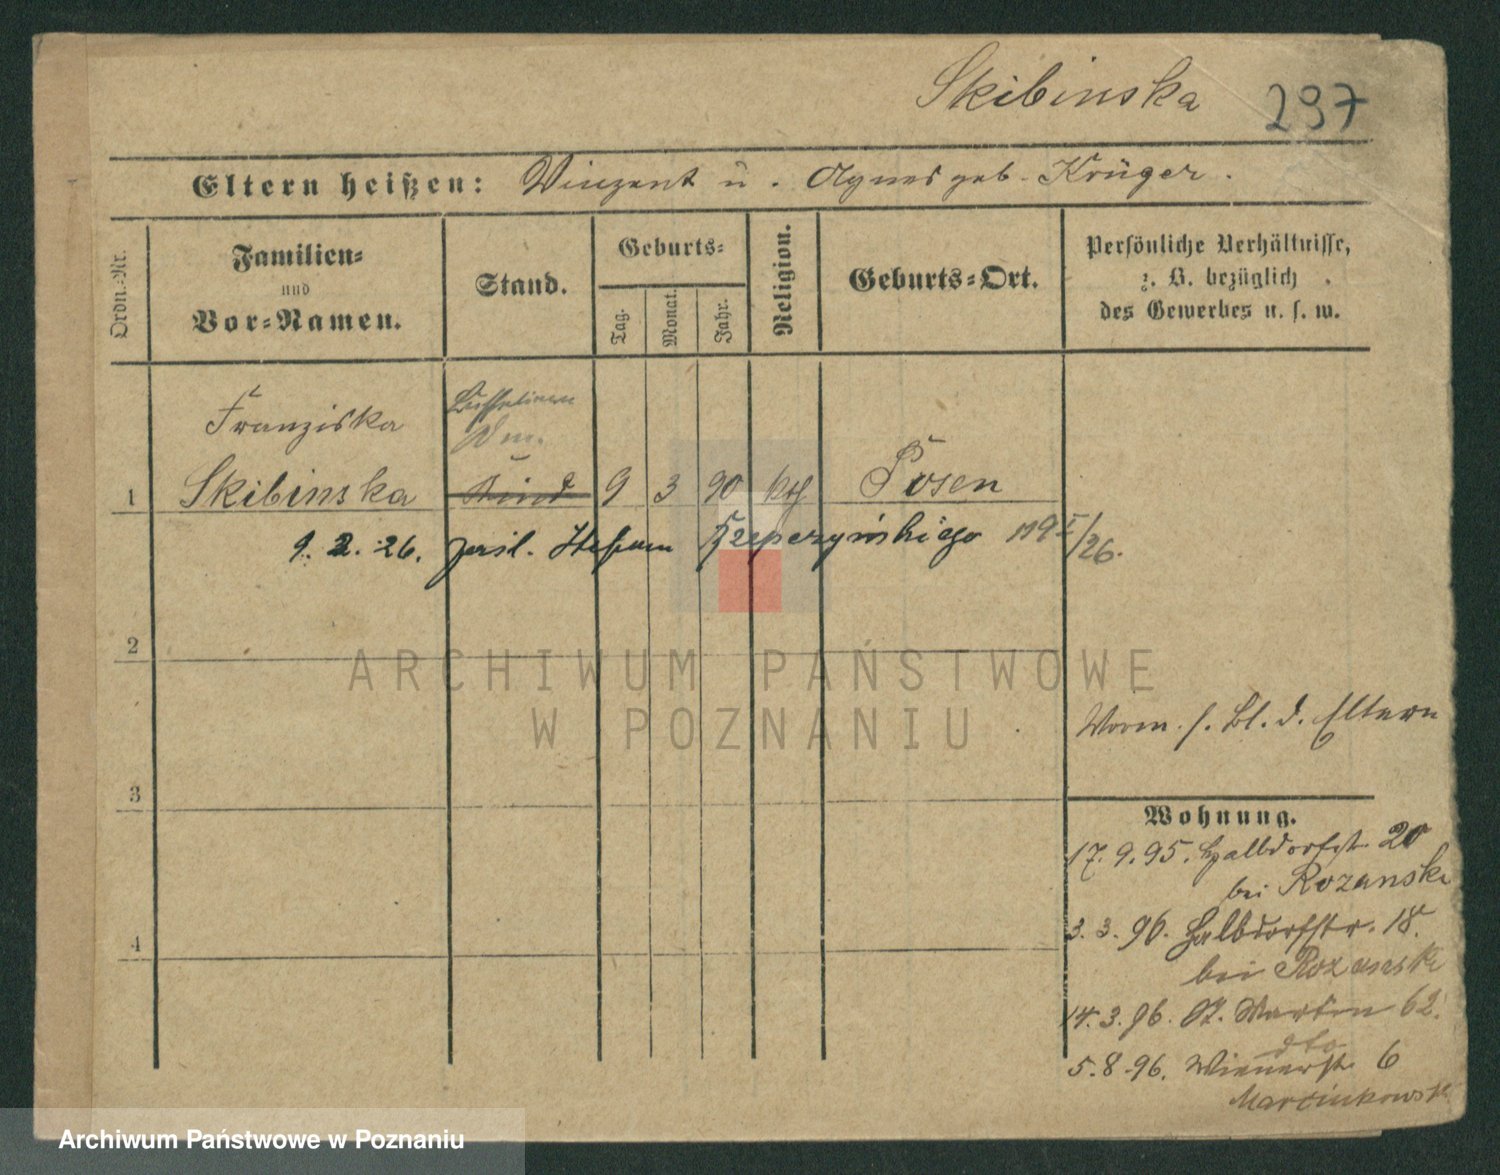 Skibinska 297
Eltern heißen: Vinzent u. Agnes geb. Krüger.
Ordn.-Nr.
Familien-
und
Vor-Namen.
Stand.
Geburts-
Tag.
Monat.
Jahr.
Religion.
Geburts-Ort.
Persönliche Verhältnisse,
z. B. bezüglich
des Gewerbes u. s. w.
Franziska
1 Skibinska Kind 9 3 90 kth Posen
9. 2. 26.
2
ARCHIWUM PAŃSTWOWE
W POZNANIU
Vorm. s. Bl. d. Eltern
3
Wohnung.
17. 9. 95. Halbdorfst. 20
bei Rozanski
3. 3. 96. Halbdorfstr. 18.
4
bei Rozanski
14. 3. 96. St. Martin 62.
dto
5. 8. 96. Wienerst. 6
Marcinkowsk
Archiwum Państwowe w Poznaniu